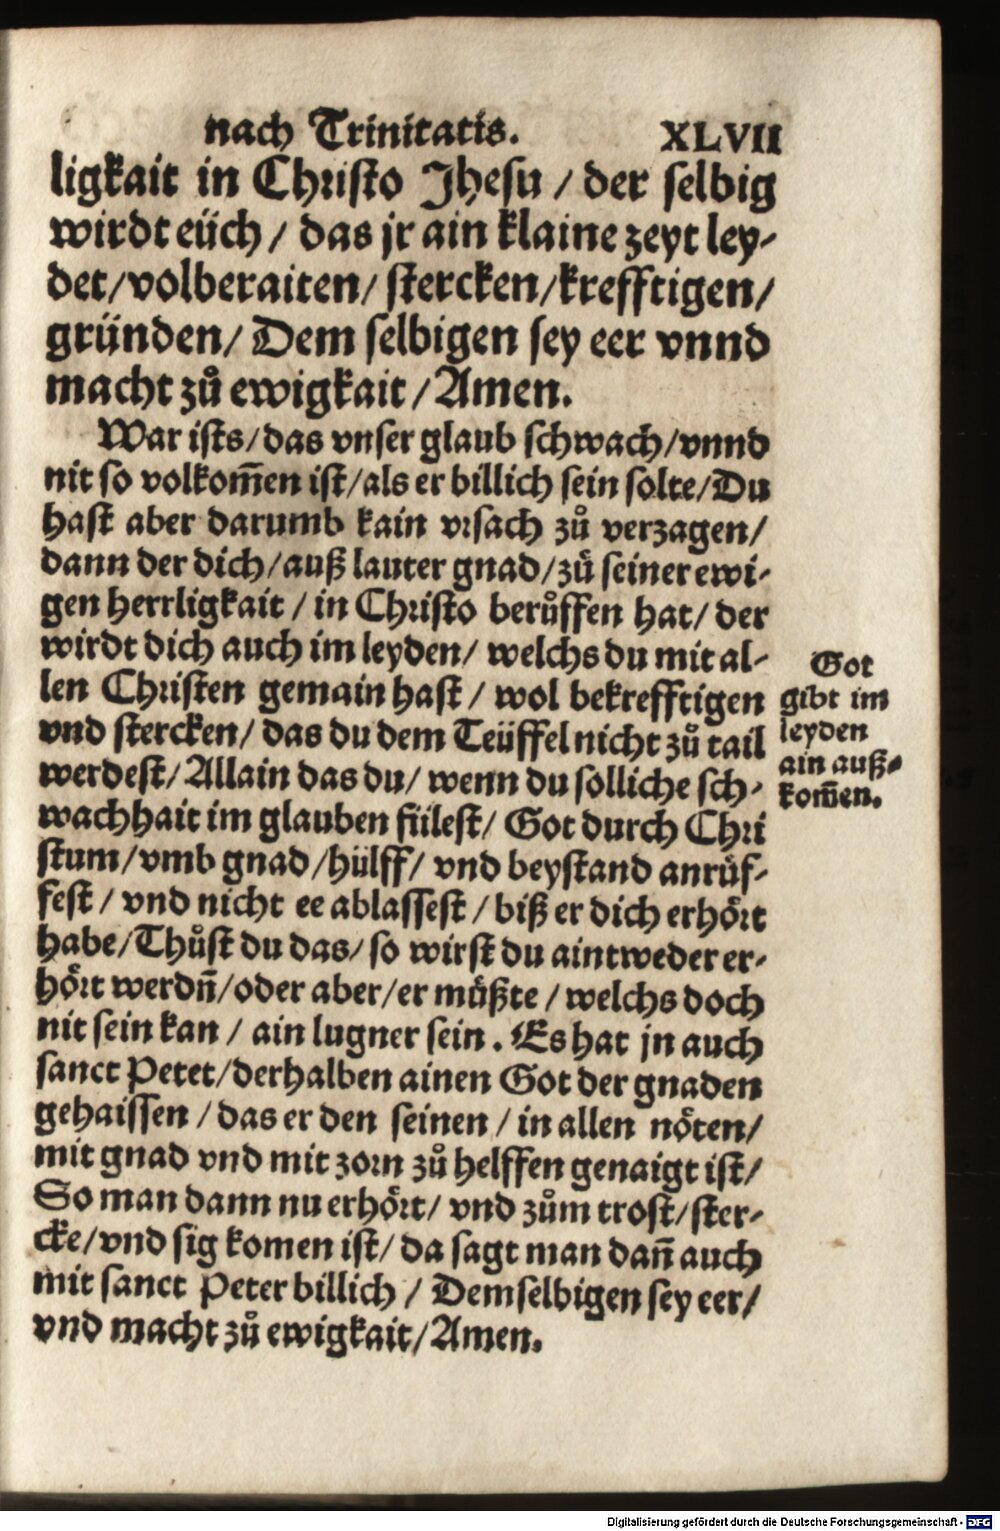 nach Trinitatis. XLVII
ligkait in Christo Jhesu / der selbig
wirdt eüch / das jr ain klaine zeyt ley-
det/volberaiten/ stercken/krefftigen/
gründen/ Dem selbigen sey eer vnnd
macht zů ewigkait /Amen.
War ists/das vnser glaub schwach/vnnd
nit so volkom̄en ist/als er billich sein solte/Du
hast aber darumb kain vrsach zů verzagen/
dann der dich/auß lauter gnad/zů seiner ewi-
gen herrligkait / in Christo berůffen hat/ der
wirdt dich auch im leyden/ welchs du mit al-
len Christen gemain hast / wol bekrefftigen
vnd stercken/ das du dem Teüffel nicht zů tail
werdest/Allain das du/ wenn du solliche sch-
wachhait im glauben fülest/ Got durch Chri
stum/vmb gnad/hülff/ vnd beystand anrůf-
fest / vnd nicht ee ablassest / biß er dich erhört
habe/Thůst du das/ so wirst du aintweder er-
hört werdn̄/oder aber/er můßte / welchs doch
nit sein kan / ain lugner sein. Es hat jn auch
sanct Petet/derhalben ainen Got der gnaden
gehaissen /das er den seinen / in allen nöten/
mit gnad vnd mit zorn zů helffen genaigt ist/
So man dann nu erhört/ vnd zům trost/ster-
cke/vnd sig komen ist/ da sagt man dan̄ auch
mit sanct Peter billich / Demselbigen sey eer/
vnd macht zů ewigkait/Amen.
Got
gibt im
leyden
ain auß-
kom̄en.
Digitalisierung gefördert durch die Deutsche Forschungsgemeinschaft - DFG